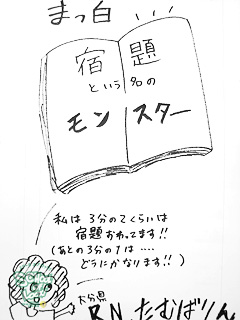 まっ白
宿題
という名の
モンスター
私は3分の2くらいは
宿題おわってます!!
(あとの3分の1は....
どうにかなります!!)
大分県
R.N.たむばりん